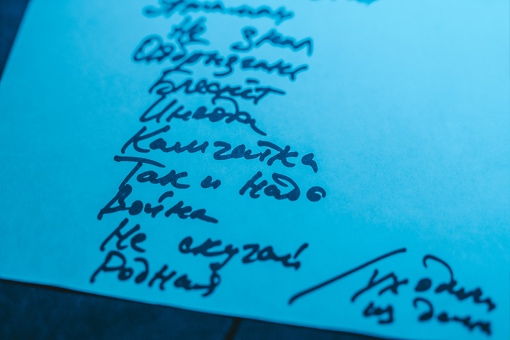 Не знал
Обрыгание
Блестит
Иногда
Камчатка
Так и надо
Война
Не скучай
Родная / Уходили
из дома